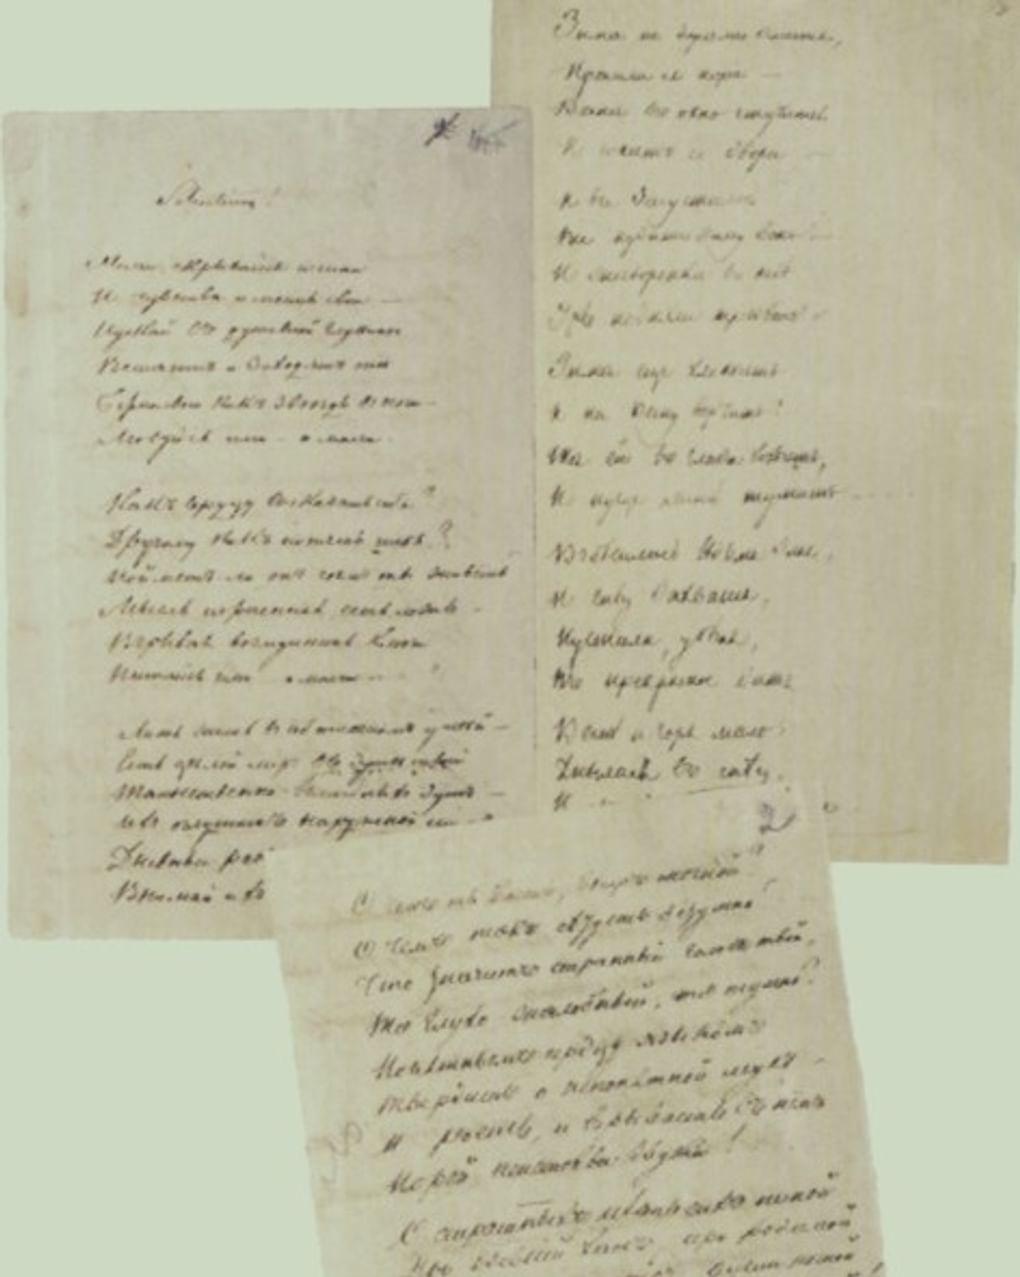 Silentium!
Молчи, скрывайся и таи
И чувства и мечты свои —
Пускай въ душевной глубинѣ
Встаютъ и заходятъ онѣ
Безмолвно какъ звѣзды въ ночи —
Любуйся ими — и молчи.
Какъ сердцу высказать себя?
Другому какъ понять тебя?
Пойметъ ли онъ чѣмъ ты живешь
Мысль изреченная есть ложь —
Взрывая возмутишь ключи
Питайся ими — и молчи
Лишь жить въ себѣ самомъ умѣй —
Есть цѣлый міръ въ душѣ твоей
Таинственно-волшебныхъ думъ —
Ихъ оглушитъ наружной шумъ —
Дневные
Внимай их
Зима не даромъ злится,
Прошла ея пора —
Весна въ окно стучится
И гонитъ со двора
И все засуетилось
Все нудитъ Зиму вонъ —
И жаворонки въ небѣ
Ужъ подняли трезвонъ
Зима еще хлопочетъ
И на Весну ворчитъ!
Та ей въ глаза хохочетъ,
И пуще лишь шумитъ
Взбѣсилась вѣдьма злая,
И снѣгу захватя,
Пустила, убѣгая,
Въ прекрасное дитя
Веснѣ и горя мало
Умылась въ снѣгу,
И
2
О чемъ ты воешь, вѣтръ ночной?
О чемъ такъ сѣтуешь безумно
Что значитъ странный голосъ твой,
То глухо жалобный, то шумно?
Понятнымъ сердцу языкомъ
Твердишь о непонятной мукѣ —
И роешь, и взрываешь въ немъ
Порой неистовые звуки!
О страшныхъ пѣсенъ сихъ не пой
Про древній хаосъ, про родимой